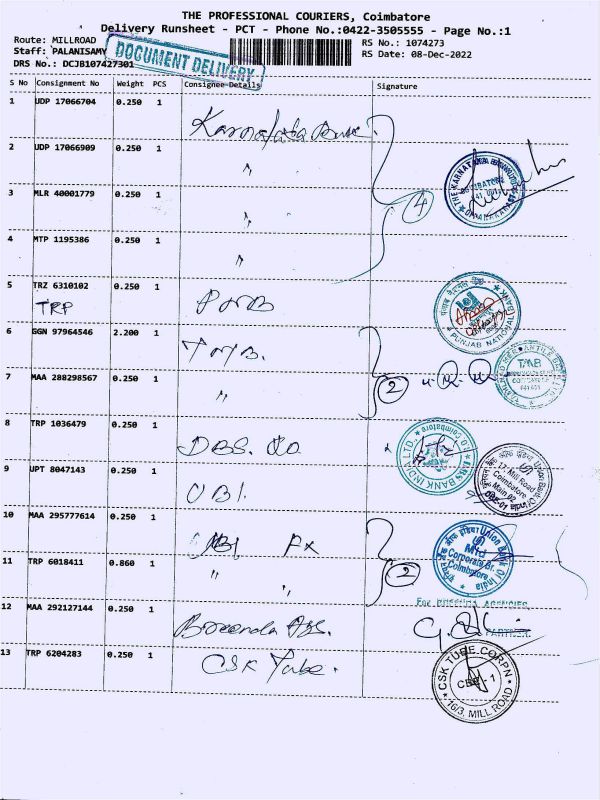 THE PROFESSIONAL COURIERS, Coimbatore
Delivery Runsheet - PCT - Phone No.:0422-3505555 - Page No.:1
Route: MILLROAD
RS No.: 1074273
Staff: PALANISAMY
RS Date: 08-Dec-2022
DRS No.: DCJB107427301
DOCUMENT DELIVERY
S No Consignment No Weight PCS Consignee Details Signature
1 UDP 17066704 0.250 1 Karnataka Bank.
2 UDP 17066909 0.250 1 "
3 MLR 40001779 0.250 1 "
4 MTP 1195386 0.250 1 "
4
THE KARNATAKA
COIMBATORE
5 TRZ 6310102 0.250 1 PNB
TRP
PUNJAB NATIONAL BANK
6 GGN 97964546 2.200 1 TMB.
7 MAA 288298567 0.250 1 "
2
TMB
8 TRP 1036479 0.250 1 DBS.
DBS BANK INDIA LTD. Coimbatore
9 UPT 8047143 0.250 1 UBI.
Union Bank Of India
17 Mill Road
Coimbatore
Main 02
10 MAA 295777614 0.250 1 UBI Fx
11 TRP 6018411 0.860 1 " "
2
Union Bank Of India
Mid
Corporate Br.
Coimbatore
12 MAA 292127144 0.250 1
AGENCIES
PARTNER
13 TRP 6204283 0.250 1 CSK Tube.
CSK TUBE CORPN
CBE - 1
16/3, MILL ROAD